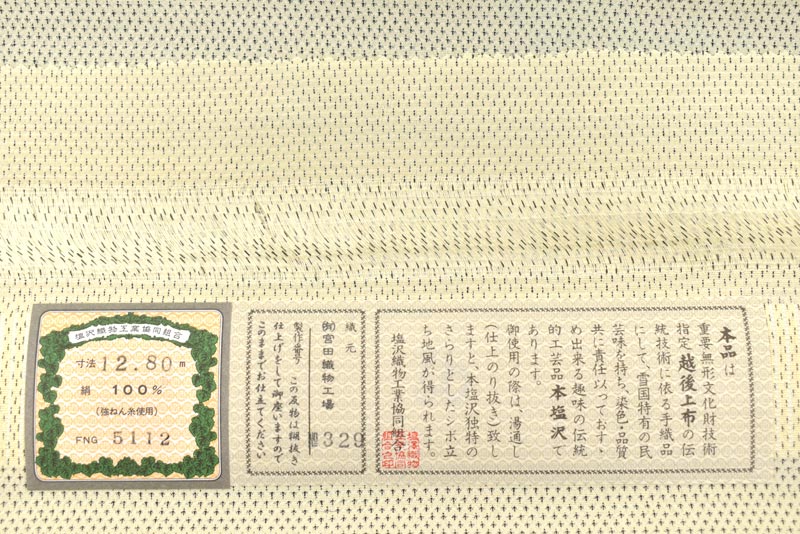 塩沢織物工業協同組合
寸法 12.80 m
絹 100%
(強ねん糸使用)
FNG 5112
織元
㈲宮田織物工場
製作番号
329
この反物は糊抜き
仕上げをして御座いますので
このままでお仕立てください
本品は
重要無形文化財技術
指定越後上布の伝
統技術に依る手織品
にして、雪国特有の民
芸味を持ち、染色・品質
共に責任以っておすゝ
め出来る趣味の伝統
的工芸品本塩沢で
あります。
御使用の際は、湯通し
(仕上のり抜き)致し
ますと、本塩沢独特の
さらりとしたシボ立
ち地風が得られます。
塩沢織物工業協同組合